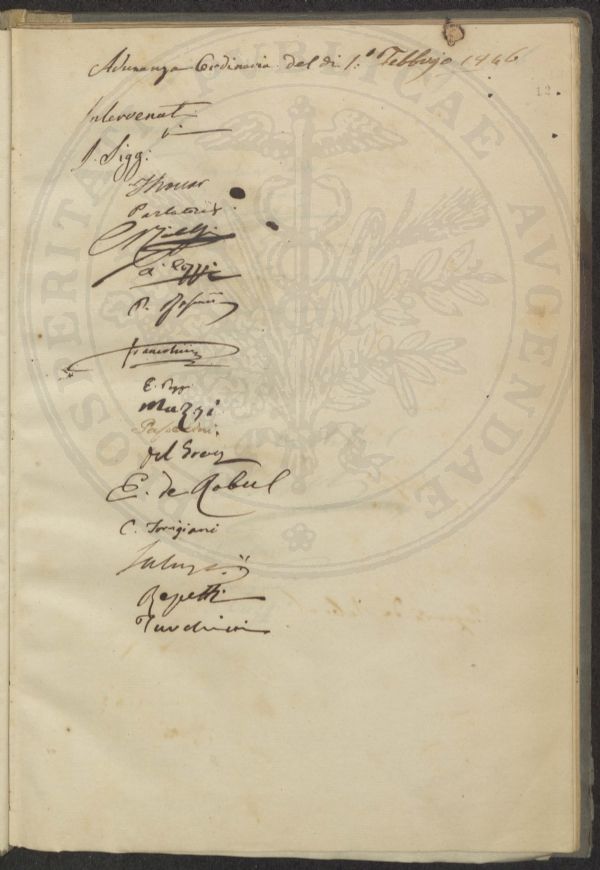 Adunanza Ordinaria del dì 1.º Febbrajo 1846
12.
Intervenuti
I Sigg:
Thouar
Parlatore
P.
Franceschini
E. Poggi
Muzzi
Passerini
Del Greco
E. de Robul
C. Torrigiani
Repetti
Turchini
PROSPERITATI PUBLICAE AVGENDAE